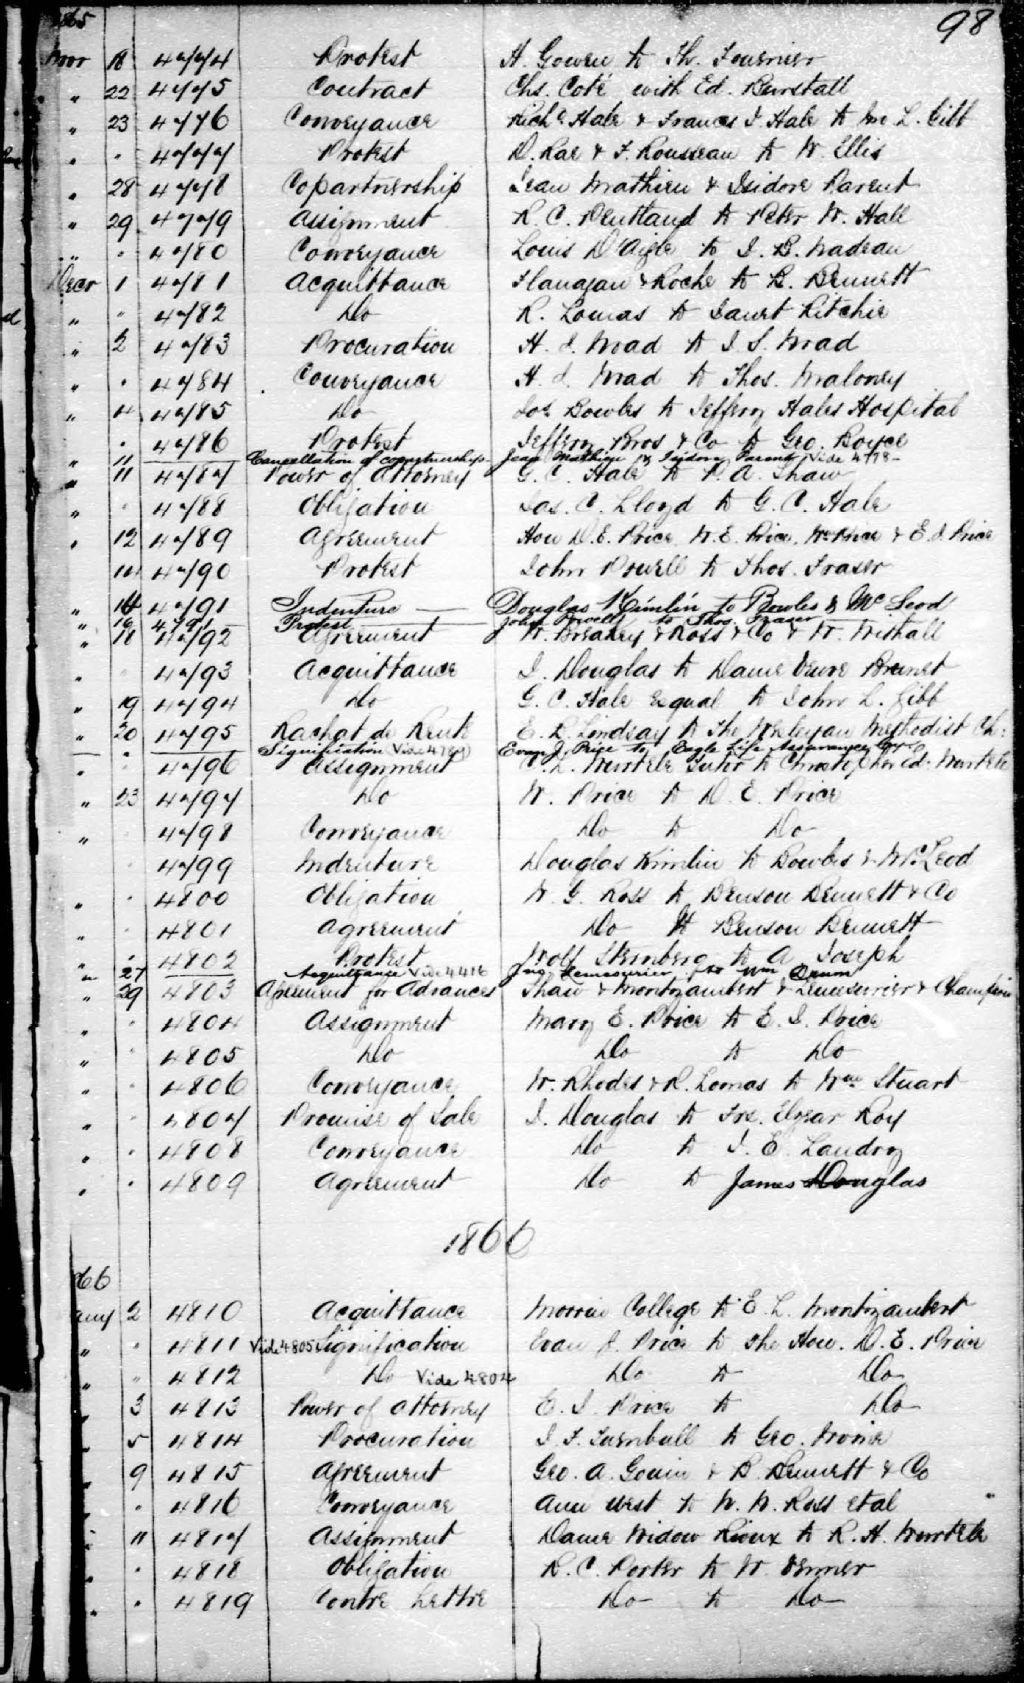 1865 98
Novr 18 4774 Protest H. Gowen to Th. Fournier
" 22 4775 Contract Chs. Coté with Ed. Burstall
" 23 4776 Conveyance Richd. Hale & Frances I. Hale to L. Gibb
" " 4777 Protest D. Rae & F. Rousseau to W. Ellis
" 28 4778 Copartnership Jean Mathieu & Isidore Parent
" 29 4779 Assignment R. C. Pentland to Peter W. Hall
" " 4780 Conveyance Louis D'Aigle to J. B. Nadeau
Decr 1 4781 Acquittance Flanagan & Roche to B. Bennett
" " 4782 Do R. Lomas to Janet Ritchie
" 2 4783 Procuration H. J. Noad to J. S. Noad
" " 4784 Conveyance H. J. Noad to Thos. Maloney
" 4 4785 Do Jos. Bowles to Jeffery Hales Hospital
" " 4786 Protest Jeffery Bros & Co to Geo. Boyce
" 11 Cancellation of copartnership Jean Mathieu & Isidore Parent Vide 4778
" 11 4787 Power of Attorney G. C. Hale to P. A. Shaw
" " 4788 Obligation Jas. C. Lloyd to G. C. Hale
" 12 4789 Agreement Hon D. E. Price, W. E. Price, & E. J. Price
14 4790 Protest John Powell to Thos. Fraser
" 14 4791 Indenture — Douglas Kimlin to Bowles & McLeod
" 16 4791 Protest — John Powell to Thos. Fraser
" 18 4792 Agreement W. Breakey & Ross & Co & W. Withall
" " 4793 Acquittance J. Douglas to Dame Veuve Brunet
" 19 4794 Do G. C. Hale Esqual to John L. Gibb
" 20 4795 Rachat de Rente E. R. Lindsay to The Wesleyan Methodist Ch:
— " Signification Vide 4789 Evan J. Price to Eagle Life Assurance
" " 4796 Assignment C. L. Wurtele Tutor to Christopher Ed. Wurtele
" 23 4797 Do W. Price to D. E. Price
" " 4798 Conveyance Do to Do
4799 Indenture Douglas Kimlin to Bowles & McLeod
" " 4800 Obligation W. G. Ross to Benson Bennett & Co
" " 4801 Agreement Do to Benson Bennett
" " 4802 Protest Wolf Sternberg to A Joseph
" 27 Acquittance Vide 4416 Jno Lemesurier to Wm Drum
" 29 4803 Agreement for Advances Shaw & Montizambert & Lemesurier & Champion
" " 4804 Assignment Mary E. Price to E. J. Price
" " 4805 Do Do to Do
" " 4806 Conveyance W. Rhodes & R. Lomas to Wm Stuart
" " 4807 Promise of Sale J. Douglas to Frs. Elzear Roy
" " 4808 Conveyance Do to J. E. Landry
" " 4809 Agreement Do to James Douglas
1866
66
any 2 4810 Acquittance Morrin College to E. L. Montizambert
" " 4811 Vide 4805 Signification Evan J. Price to the Hon. D. E. Price
" " 4812 Do Vide 4804 Do to Do
3 4813 Power of Attorney E. J. Price to Do
5 4814 Procuration J. F. Turnbull to Geo.
9 4815 Agreement Geo. A. Gouin & B. Bennett & Co
" 4816 Conveyance Ann West to W. W. Ross et al
" 11 4817 Assignment Dame Widow Rioux to R. H. Wurtele
" " 4818 Obligation R. C. Porter to W. Venner
" " 4819 Contre Lettre Do to Do